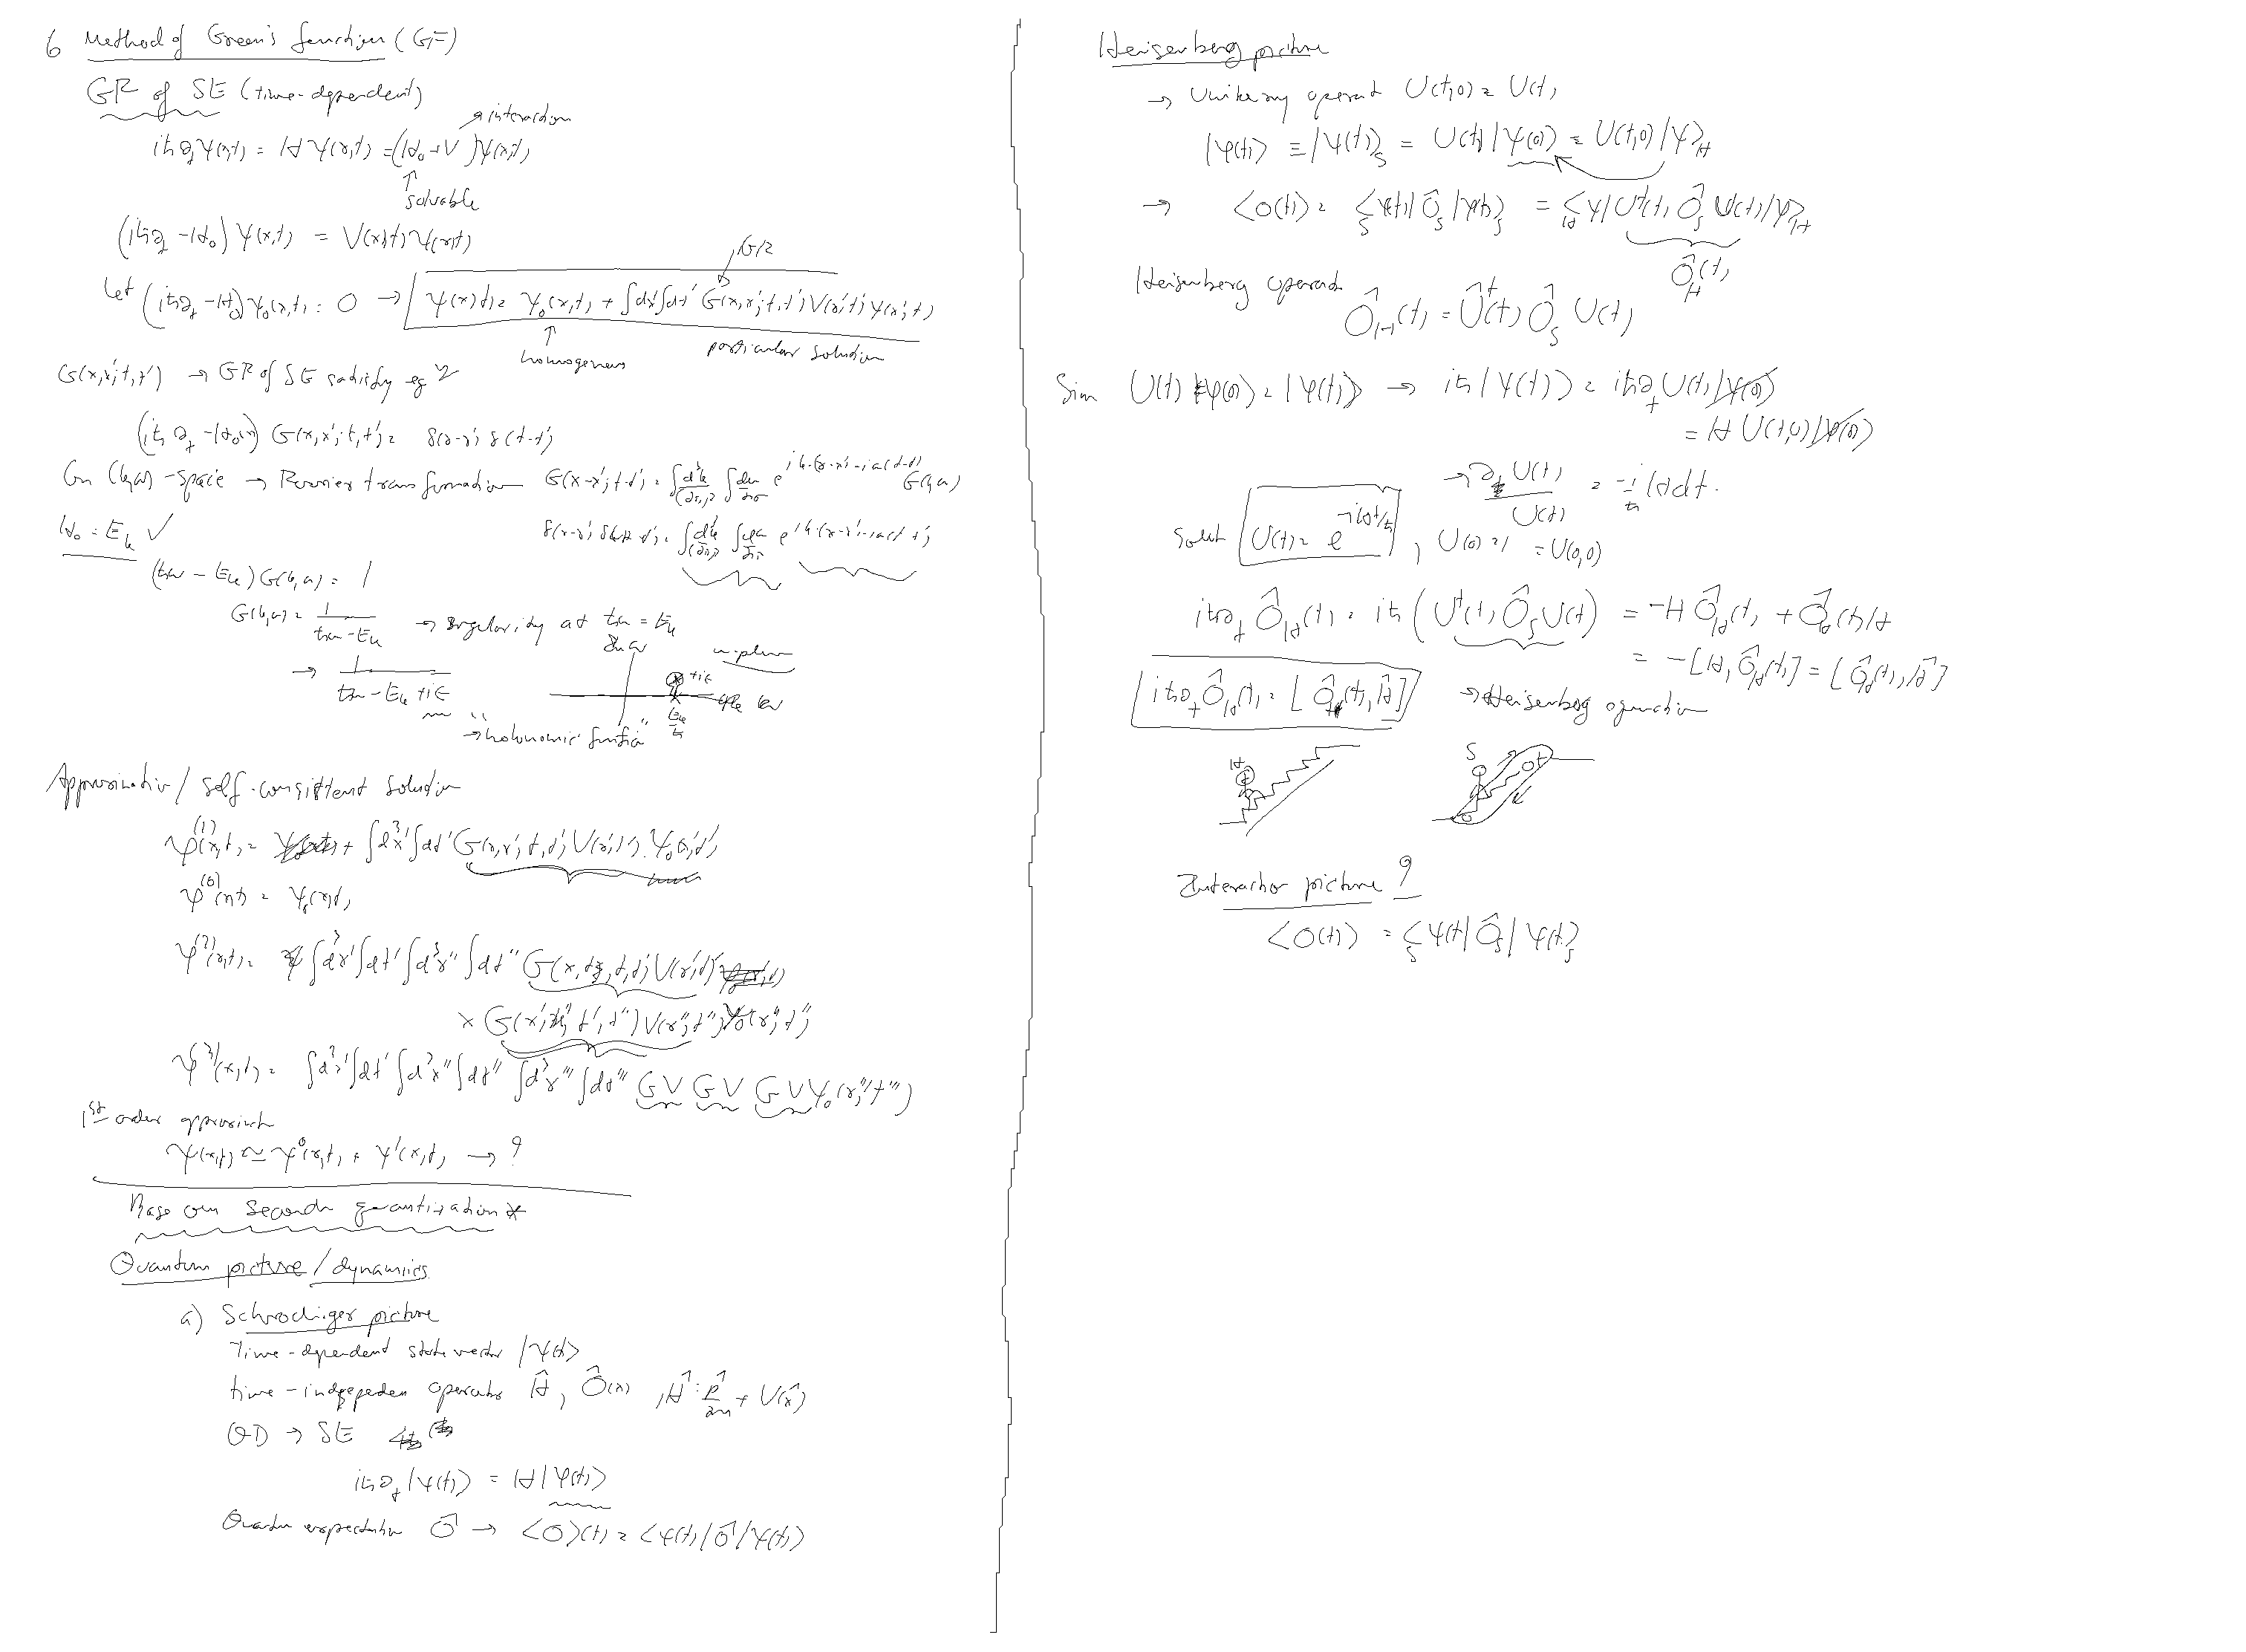 6 Method of Green's function (GF)
GF of SE (time-dependent)
→ interaction
iħ∂_t ψ(x,t) = H ψ(x,t) = (H_0 + V) ψ(x,t)
↑
solvable
(iħ∂_t - H_0) ψ(x,t) = V(x,t) ψ(x,t)
Let (iħ∂_t - H_0) ψ_0(x,t) = 0 → ψ(x,t) = ψ_0(x,t) + ∫dx'∫dt' G(x,x';t,t') V(x',t') ψ(x',t')
homogenous
particular solution
G(x,x';t,t') → GF of SE satisfy eq
(iħ∂_t - H_0(x)) G(x,x';t,t') = δ(x-x') δ(t-t')
(k,ω)-space → Fourier transformation G(x-x';t-t') = ∫d³k/(2π)³ ∫dω/2π e^{ik·(x-x')-iω(t-t')} G(k,ω)
H_0 = E_k ✓
δ(x-x') δ(t-t') = ∫d³k/(2π)³ ∫dω/2π e^{ik·(x-x')-iω(t-t')}
(ħω - E_k) G(k,ω) = 1
G(k,ω) = 1/(ħω - E_k) → singularity at ħω = E_k
→ 1/(ħω - E_k + iε)
Im ω
ω-plane
+iε
Re ω
E_k/ħ
→ "holonomic function"
Approximation / self-consistent solution
ψ^(1)(x,t) = + ∫d³x'∫dt' G(x,x';t,t') V(x',t') ψ_0(x',t')
ψ^(0)(x,t) = ψ_0(x,t)
ψ^(2)(x,t) = ∫d³x'∫dt'∫d³x''∫dt'' G(x,x';t,t') V(x',t')
× G(x',x'';t',t'') V(x'',t'') ψ_0(x'',t'')
ψ^(3)(x,t) = ∫d³x'∫dt'∫d³x''∫dt''∫d³x'''∫dt''' GV GV GV ψ_0(x''',t''')
1st order approximat
ψ(x,t) ≃ ψ^0(x,t) + ψ^1(x,t) → ?
Base on second quantization *
Quantum picture / dynamics
a) Schrodiger picture
Time-dependent state vector |ψ(t)⟩
time-indepeden operator Ĥ, Ô(x), Ĥ = p̂/2m + V(x̂)
QD → SE
iħ∂_t |ψ(t)⟩ = H |ψ(t)⟩
Ô → ⟨O⟩(t) = ⟨ψ(t)|Ô|ψ(t)⟩
Heisenberg picture
→ Unitary operat U(t,0) = U(t)
|ψ(t)⟩ ≡ |ψ(t)⟩_S = U(t)|ψ(0)⟩ = U(t,0)|ψ⟩_H
→ ⟨O(t)⟩ = _S⟨ψ(t)|Ô_S|ψ(t)⟩_S = _H⟨ψ|U†(t) Ô_S U(t)|ψ⟩_H
Ô_H(t)
Heisenberg operat
Ô_H(t) = Û†(t) Ô_S U(t)
U(t)|ψ(0)⟩ = |ψ(t)⟩ → iħ|ψ(t)⟩ = iħ∂_t U(t)|ψ(0)⟩
= H U(t,0)|ψ(0)⟩
→ ∂_t U(t)/U(t) = -i/ħ H dt.
Solut U(t) = e^{-iHt/ħ}, U(0) = 1 = U(0,0)
iħ∂_t Ô_H(t) = iħ (U†(t) Ô_S U(t)) = -H Ô_H(t) + Ô_H(t) H
= -[H, Ô_H(t)] = [Ô_H(t), Ĥ]
iħ∂_t Ô_H(t) = [Ô_H(t), Ĥ] → Heisenberg
H
S
Interaction picture ?
⟨O(t)⟩ = _S⟨ψ(t)|Ô_S|ψ(t)⟩_S